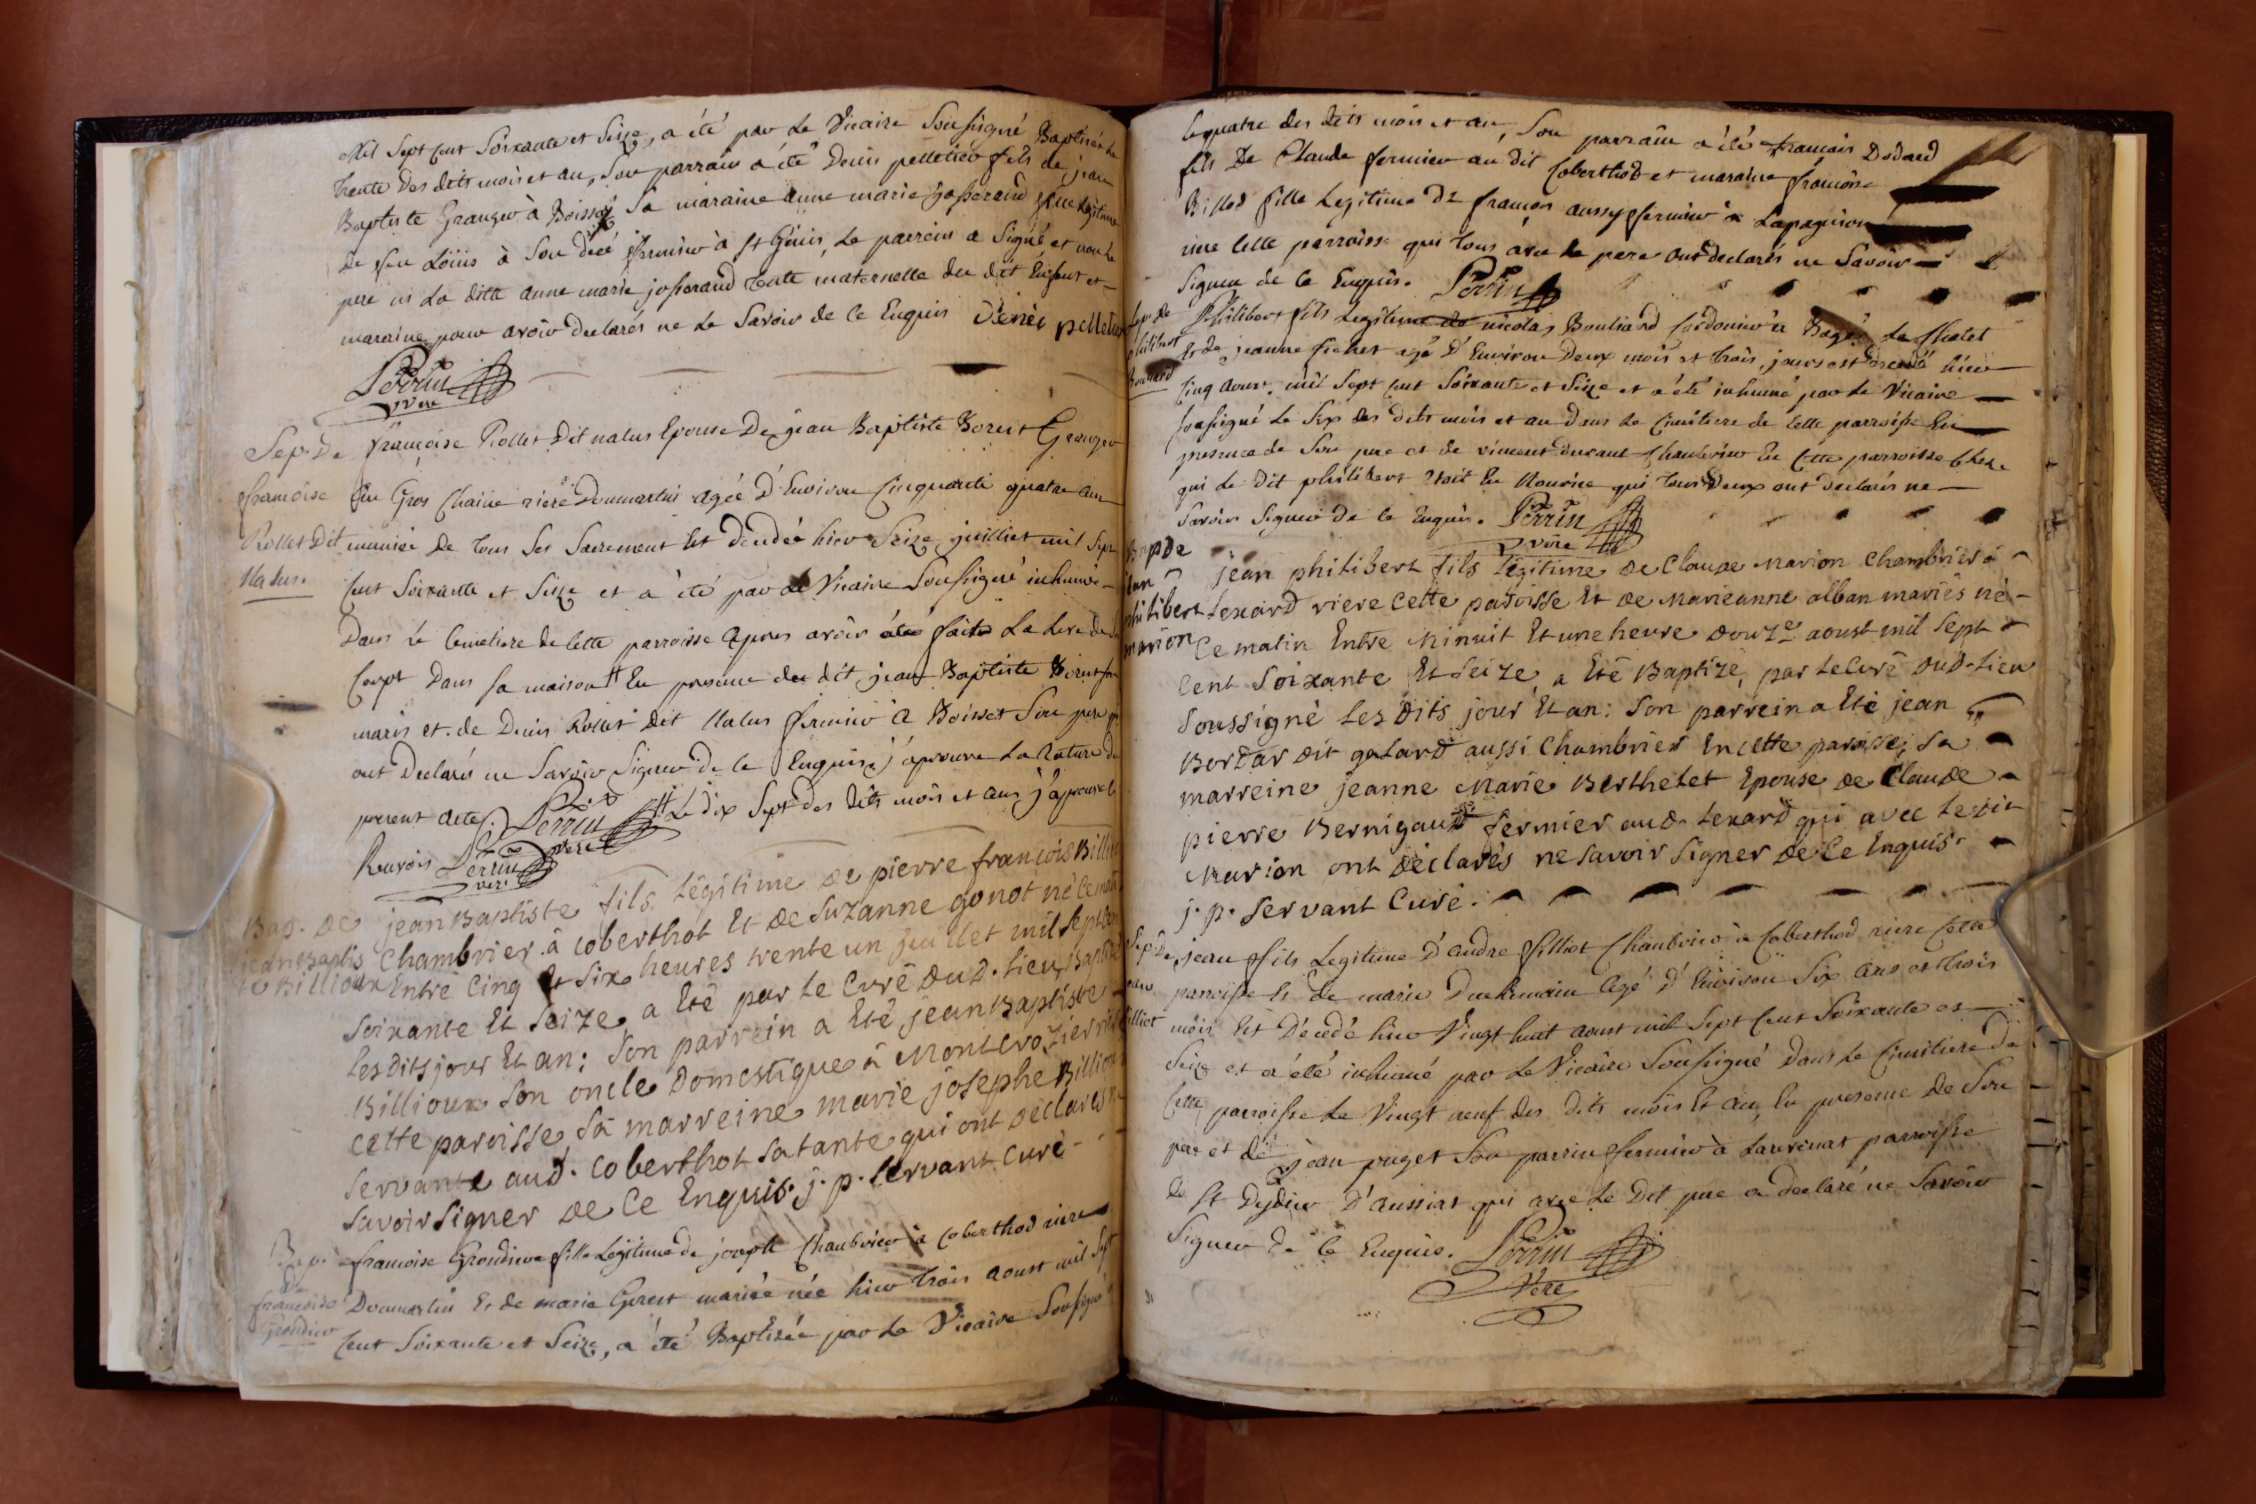 Mil Sept Cent Soixante et Seize, a été par Le Vicaire Soussigné Baptisée Le
trente des dits mois et an, Son parrain a été Denis pelletier fils de jean
Baptiste Granger à Boissey Sa maraine anne marie josserand fille Legitime
de feu Loüis à Son déce fermier à St Genis, Le parrein a Signé et non Le
pere ni La ditte anne marie josserand tente maternelle du dit Enfent et
maraine pour avoir declarés ne Le Savoir de Ce Enquis Denis pelletier
Perrin
vire
Sep. De françoise Rollet Dit natus Epouse De jean Baptiste Borest Granger
françoise En Gros Chaine riere Dommartin agée D'Environ Cinquante quatre ans
Rollet Dit munie De tous Ses Sacrement Est decedée hier Seize juilliet mil Sept
Natus. Cent Soixante et Seize et a été par Le Vicaire Soussigné inhumée
Dans Le Cemetiere de Cette parroisse apres avoir été faite La Levé du
Corps Dans Sa maison # En presence du dit jean Baptiste Borest son
maris et de Denis Rollet Dit Natus fermier à Boisset Son pere qui
ont Declarés ne Savoir Signer de Ce Enquis j'aprouve La Rature du
present acte. Perrin vire # Le dix Sept des dits mois et an j'aprouve le
Renvois Perrin vire
Bap. de jean Baptiste fils Légitime de pierre françois Billioux
jean Baptis Chambrier à Coberthot Et de Suzanne gonot né Ce matin
te Billioux Entre Cinq Et Six heures trente un juillet mil Sept Cent
Soixante Et Seize, a Eté par Le Curé dud. Lieu Baptisé
Les dits jour Et an; Son parrein a Eté jean Baptiste
Billioux Son oncle Domestique à Montcrozier riere
Cette paroisse Sa marreine marie josephe Billioux
Servante aud. Coberthot Sa tante qui ont déclarés ne
Savoir Signer de Ce Enquis. j. p. Servant Curé
Bap. francoise Grondier fille Legitime de joseph Chambrier à Coberthod riere
De
francoise Dommartin Et de marie Gerest mariée née hier trois aoust mil Sept
Grondier Cent Soixante et Seize, a été Baptisée par Le Vicaire Soussigné
Le quatre des dits mois et an, Son parrain a été francois Dodard
fils De Claude fermier au dit Coberthod et maraine francoise
Billod fille Legitime de francois aussy fermier à
une Cette parroisse qui tous avec le pere ont declarés ne Savoir
Signer de Ce Enquis. Perrin
Sep. de Philibert fils Legitime de nicolas Bouliard Cordonier à Bagé Le Chatel
philibert Et de jeanne fichet agé D'Environ Deux mois et trois jours est decedé hier
Bouliard Cinq aoust mil Sept Cent Soixante et Seize et a été inhumé par Le Vicaire
Soussigné Le Six des dits mois et an Dans Le Cimetiere de Cette parroisse En
presence de Son pere et de vincent durant Chambrier En Cette parroisse Chez
qui Le Dit philibert etoit En Nourice qui tous Deux ont declarés ne
Savoir Signer De Ce Enquis. Perrin
vire
Bap de jean philibert fils Légitime de Claude Marion Chambrier à
jean
philibert Lexard riere Cette paroisse Et de Marieanne alban mariés né
marion Ce matin Entre Minuit Et une heure douze aoust mil Sept
Cent Soixante Et Seize, a Eté Baptizé, par Le Curé dud. Lieu
Soussigné Les dits jour Et an; Son parrein a Eté jean
Bordar dit galard aussi Chambrier En Cette paroisse, Sa
marreine jeanne Marie Berthelet Epouse de Claude
pierre Bernigaud fermier aud. Lexard qui avec Le dit
Marion ont déclarés ne Savoir Signer de Ce Enquis.
j. p. Servant Curé.
Sep. De jean fils Legitime D'andre filliot Chambrier à Coberthod riere Cette
jean parroisse Et de marie Duchemain agé D'Environ Six ans et trois
filliot mois Est Decedé hier Vingt huit aoust mil Sept Cent Soixante et
Seize et a été inhumé par Le Vicaire Soussigné Dans Le Cimitiere De
Cette parroisse Le Vingt neuf des dits mois Et an, En presence De Son
pere et de jean puget Son parrin fermier à parroisse
De St Dydier D'aussiat qui avec Le Dit pere a declaré ne Savoir
Signer De Ce Enquis. Perrin
Vire